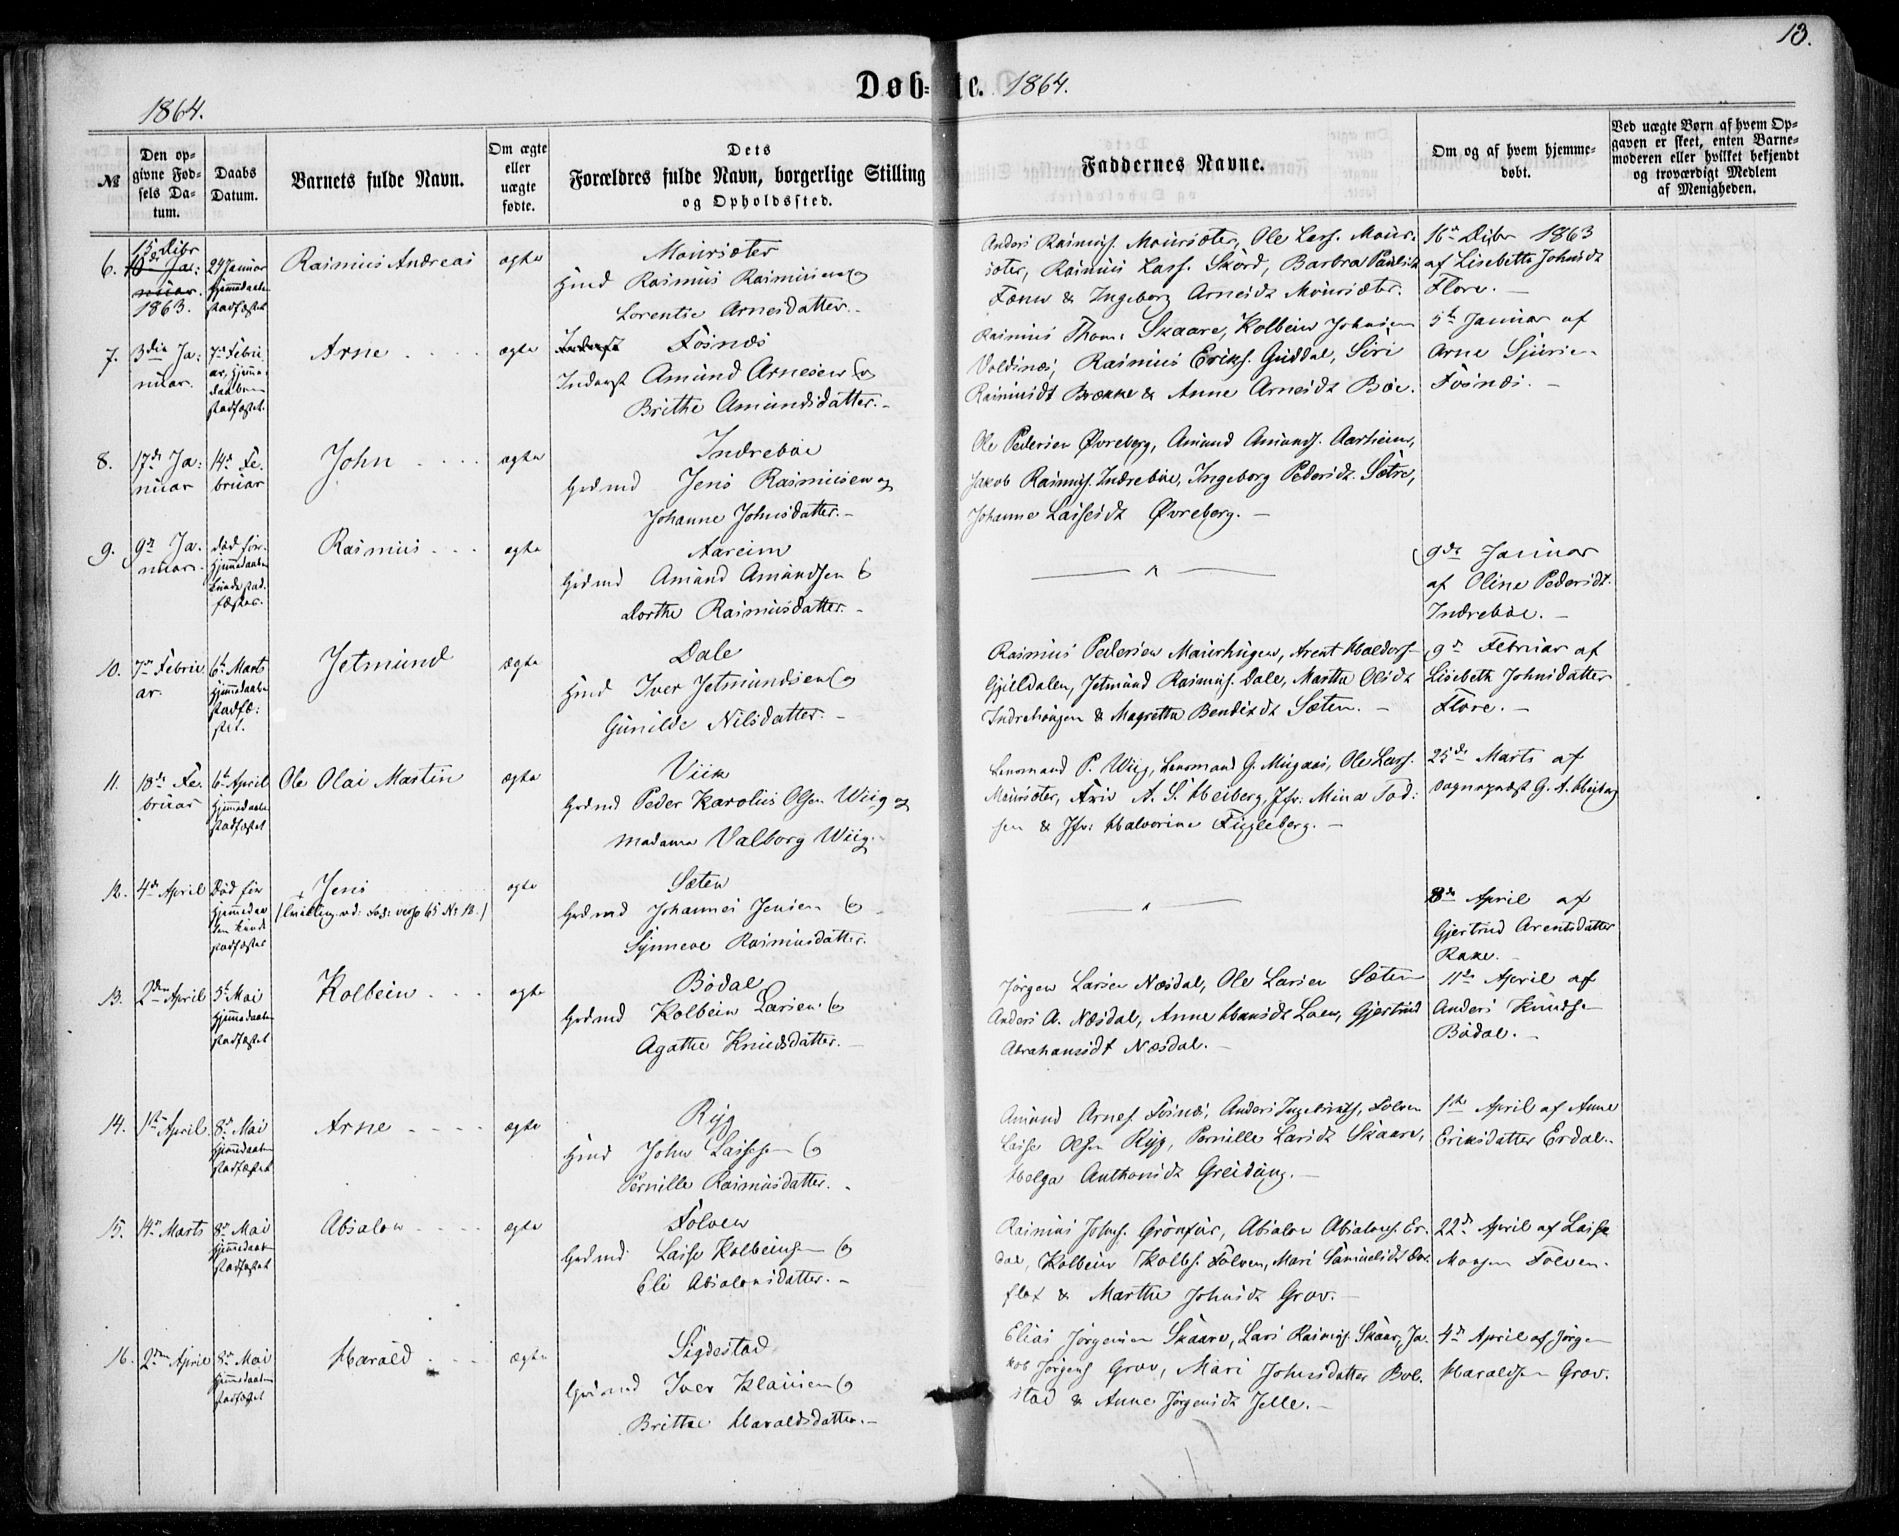 13.
Døb=te. 1864.
1864.
№
Den op-
givne Fød-
sels Da-
tum.
Daabs
Datum.
Barnets fulde Navn.
Om ægte
eller
uægte
fødte.
Dets
Forældres fulde Navn, borgerlige Stilling
og Opholdssted.
Faddernes Navne.
Om og af hvem hjemme-
døbt.
Ved uægte Børn af hvem Op-
gaven er skeet, enten Barne-
moderen eller hvilket bekjendt
og troværdigt Medlem
af Menigheden.
6.
15de Dcbr
1863.
24 Januar
Hjemmedaaben
stadfæstet
Rasmus Andreas
ægte
Moursæter
Hmd Rasmus Rasmusen og
Lorentse Arnesdatter.
Anders Rasmus. Moursæter, Ole Lass. Mour-
sæter, Rasmus Lass. Skord, Barbra Paulsdt
& Ingeborg Arnesdt Moursæter.
16de Dcbr 1863
af Lisebetta Johnsdt
Flore.
7.
3die Ja:
nuar.
7de Febru
ar, hjemme-
daaben
stadfæstet.
Arne
ægte
Fosnæs
Inderst Amund Arnesen og
Brithe Amundsdatter.
Rasmus Thom. Skaare, Kolbein Johnsen
Voldsnæs, Rasmus Eriks. Guddal, Siri
Rasmusdt Brække & Anne Arnesdt Bøe.
5te Januar af
Arne Sjursen
Fosnæs.
8.
17de Ja:
nuar
14de Fe-
bruar
John
ægte
Indrebøe
Grdmd Jens Rasmusen og
Johanne Johnsdatter.
Ole Pedersen Øvreberg, Amund Amunds. Aarheim,
Jakob Rasmus. Indrebøe, Ingeborg Pedersdt. Sætre,
Johanne Lassesdt Øvreberg.
9.
9de Ja-
nuar.
død før
Hjemmedaaben
kunde stad-
fæstes.
Rasmus
ægte
Aareim
Grdmd Amund Amundsen &
Dorthe Rasmusdatter.
9de Januar
af Oline Pedersdt.
Indrebøe.
10.
7de Febru
ar.
6te Marts
Hjemmedaaben
stadfæ:
stet.
Jetmund
ægte
Dale
Hmd Iver Jetmundsen og
Gunilde Nilsdatter.
Rasmus Pedersen Maurhugen, Arent Haldors-
Gjilldalen, Jetmund Rasmus. Dale, Martha Olsdt
Indrehaugen & Magretha Bendixdt Sæten.
9de Februar af
Lisebeth Johnsdatter
Flore.
11.
18de Fe-
bruar
6te April
Hjemmedaaben
stadfæstet
Ole Olai Martin
ægte
Viik
Grdmd Peder Karolus Olsen Wiig og
Madame Valborg Wiig.
Lensmand P. Wiig, Lensmand G. Mugaas, Ole Lass.
Moursæter, A. S. Heiberg, Jfr. Mina Tod:
sen & Jfr: Halvorine Fugleberg.
25de Marts af
Sognepræst G. A. Heiberg
12.
4de April
Død før
Hjemmedaa
ben kunde
stadfæstes
Jens
(Tvilling. vd: død: verso 65 Nr 12.)
ægte
Sæten
Grdmd Johannes Jensen &
Synneve Rasmusdatter.
8de April af
Gjertrud Arentsdatter
Rake.
13.
2den April
5te Mai
Hjemmedaaben
stadfæstet
Kolbein
ægte
Bødal
Grdmd Kolbein Larsen &
Agathe Knudsdatter.
Jørgen Larsen Næsdal, Ole Larsen Sæten
Anders A. Næsdal, Anne Hansdt Loen, Gjertrud
Abrahamsdt Næsdal.
11te April af
Anders Knudsen
Bødal.
14.
1ste April.
8de Mai
Hjemmedaaben
stadfæstet
Arne
ægte
Ryg
Hmd John Lassesen &
Pernille Rasmusdatter.
Amund Arnes. Fosnæs, Anders Ingebrikts. Folven
Lasse Olsen Ryg, Pernille Larsdt Skaare,
Helga Anthonsdt Greidung.
1ste April af Anne
Eriksdatter Erdal.
15.
14de Marts
8de Mai
Hjemmedaaben
stadfæstet
Absalon
ægte
Folven
Grdmd. Lasse Kolbeinsen &
Eli Absalonsdatter.
Rasmus Johns. Grønfur, Absalon Absalons. Er-
dal, Kolbein Kolbs. Folven, Mari Samuelsdt
flot & Marthe Johnsdt Grov.
22de April af Lasse
Monsen Folven.
16.
2den April
8de Mai
Hjemmedaaben
stadfæstet
Harald
ægte
Sigdestad
Grdmd Iver Klausen &
Brithe Haraldsdatter.
Elias Jørgensen Skaare, Lars Rasmus. Skaar, Ja-
kob Jørgens Grov, Mari Johnsdatter Bol-
stad & Anne Jørgensdt Jelle.
4de April af Jørgen
Haraldsen Grov.